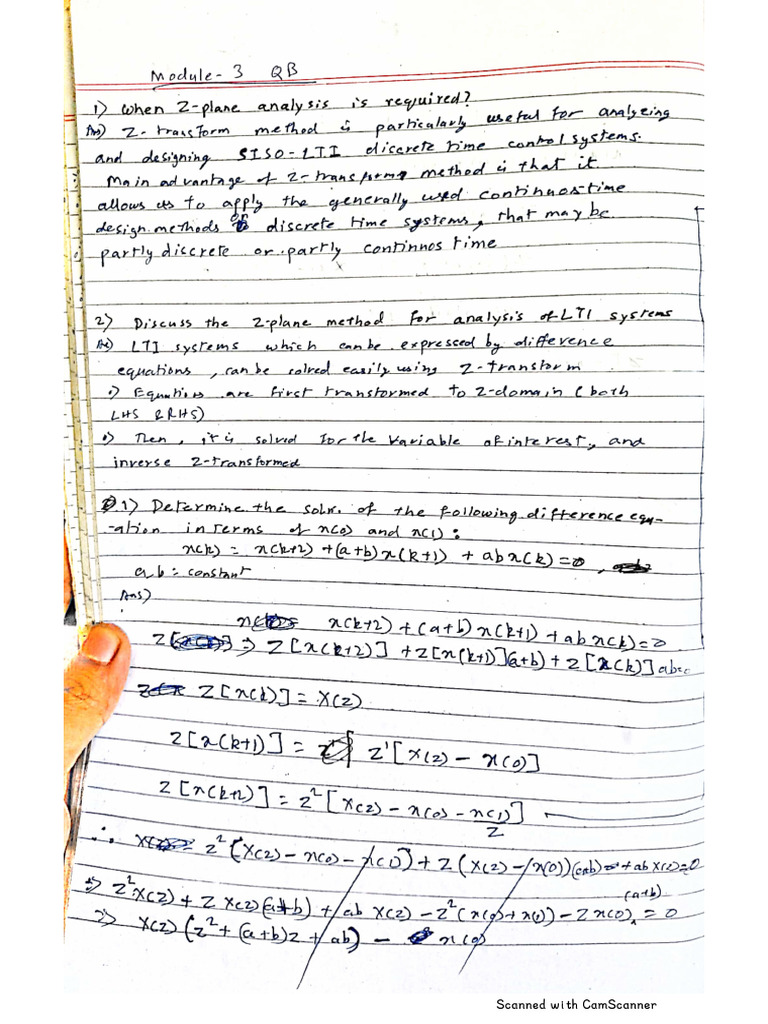 Module-3 QB
1) When Z-plane analysis is required?
Ans) Z-transform method is particularly useful for analyzeing
and designing SISO-LTI discrete time control systems.
Main advantage of Z-transform method is that it
allows us to apply the generally used continnos-time
design methods or discrete time systems, that may be
partly discrete or partly continnos time
2) Discuss the Z-plane method for analysis of LTI systems
Ans) LTI systems which can be expressed by difference
equations, can be solved easily using Z-transform
•) Equations are first transformed to Z-domain (both
LHS & RHS)
•) Then, it is solved for the variable of interest, and
inverse Z-transformed
1) Determine the soln. of the following difference equ-
-ation in terms of x(0) and x(1):
x(k) = x(k+2) + (a+b) x(k+1) + ab x(k) = 0,
a, b = constant
Ans)
x(k+2) + (a+b) x(k+1) + ab x(k) = 0
⇒ Z[x(k+2)] + Z[x(k+1)](a+b) + Z[x(k)] ab=0
Z[x(k)] = X(z)
Z[x(k+1)] = z¹[X(z) - x(0)]
Z[x(k+2)] = z²[X(z) - x(0) - x(1)/z]
∴ z²(X(z) - x(0) - x(1)) + z(X(z) - x(0))(a+b) + ab X(z) = 0
⇒ z²X(z) + z X(z)(a+b) + ab X(z) - z²(x(0) + x(1)) - z x(0)(a+b) = 0
⇒ X(z)(z² + (a+b)z + ab) - x(0)
Scanned with CamScanner